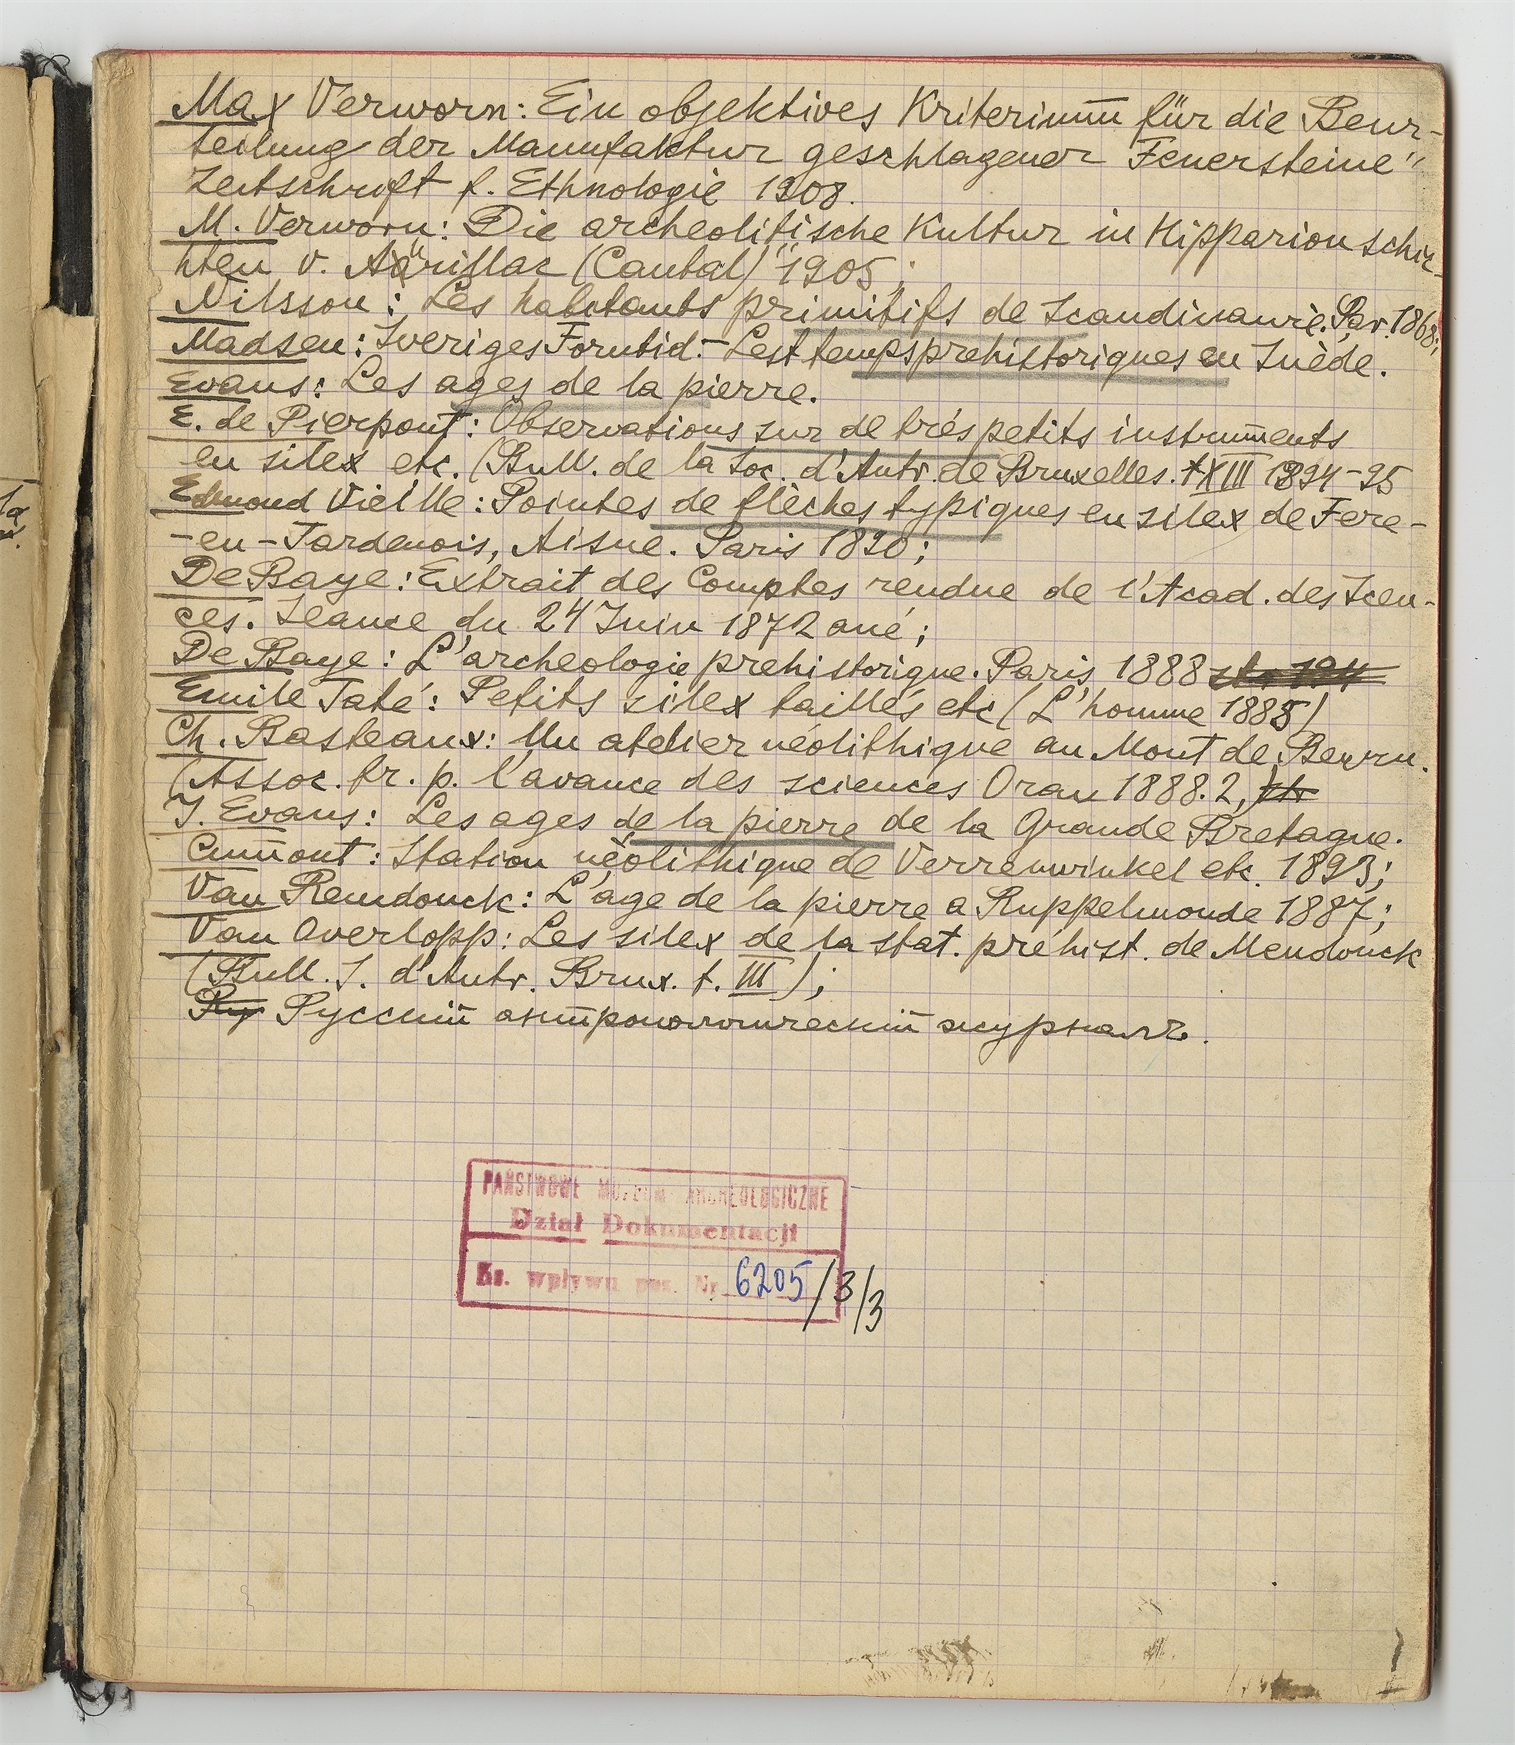 Max Verworn: Ein objektives Kriterium für die Beur-
teilung der Manufaktur geschlagener Feuersteine"
Zeitschrift f. Ethnologie 1908.
M. Verworn: Die archeolitische Kultur in Hipparion schic-
hten v. Aürillac (Cantal)" 1905;
Nilsson: Les habitants primitifs de Scandinawie. Par. 1868;
Madsen: Sveriges Forntid. - Lest temps prehistoriques en Suède.
Evans: Les ages de la pierre.
E. de Pierpont: Observations sur de trés petits instruments
en silex etc. (Bull. de la Soc. d'Antr. de Bruxelles. t XIII 1894-95
Edmond Vielle: Pointes de flèches typiques en silex de Fere-
-en-Tardenois, Aisne. Paris 1890;
De Baye: Extrait des Comptes rendue de l'Acad. des Scen-
ces. Seance du 24 Juin 1872 ané;
De Baye: L'archeologie prehistorique. Paris 1888 str 194
Emile Taté: Petits silex taillés etc (L'homme 1885)
Ch. Bosteaux: Un atelier néolithique au Mont de Berru.
(Assoc. fr. p. l'avance des sciences Oran 1888. 2, str
J. Evans: Les ages de la pierre de la Grande Bretagne.
Cumont: Station néolithique de Verrewinkel etc. 1893;
Van Remdonck: L'age de la pierre a Ruppelmonde 1887;
Van Overlopp: Les silex de la stat. préhist. de Mendonck
(Bull. S. d'Antr. Brux. t. III);
Ру Русскій антропологическій журналъ.
PAŃSTWOWE MUZEUM ARCHEOLOGICZNE
Dział Dokumentacji
Ks. wpływu poz. Nr 6205/3/3